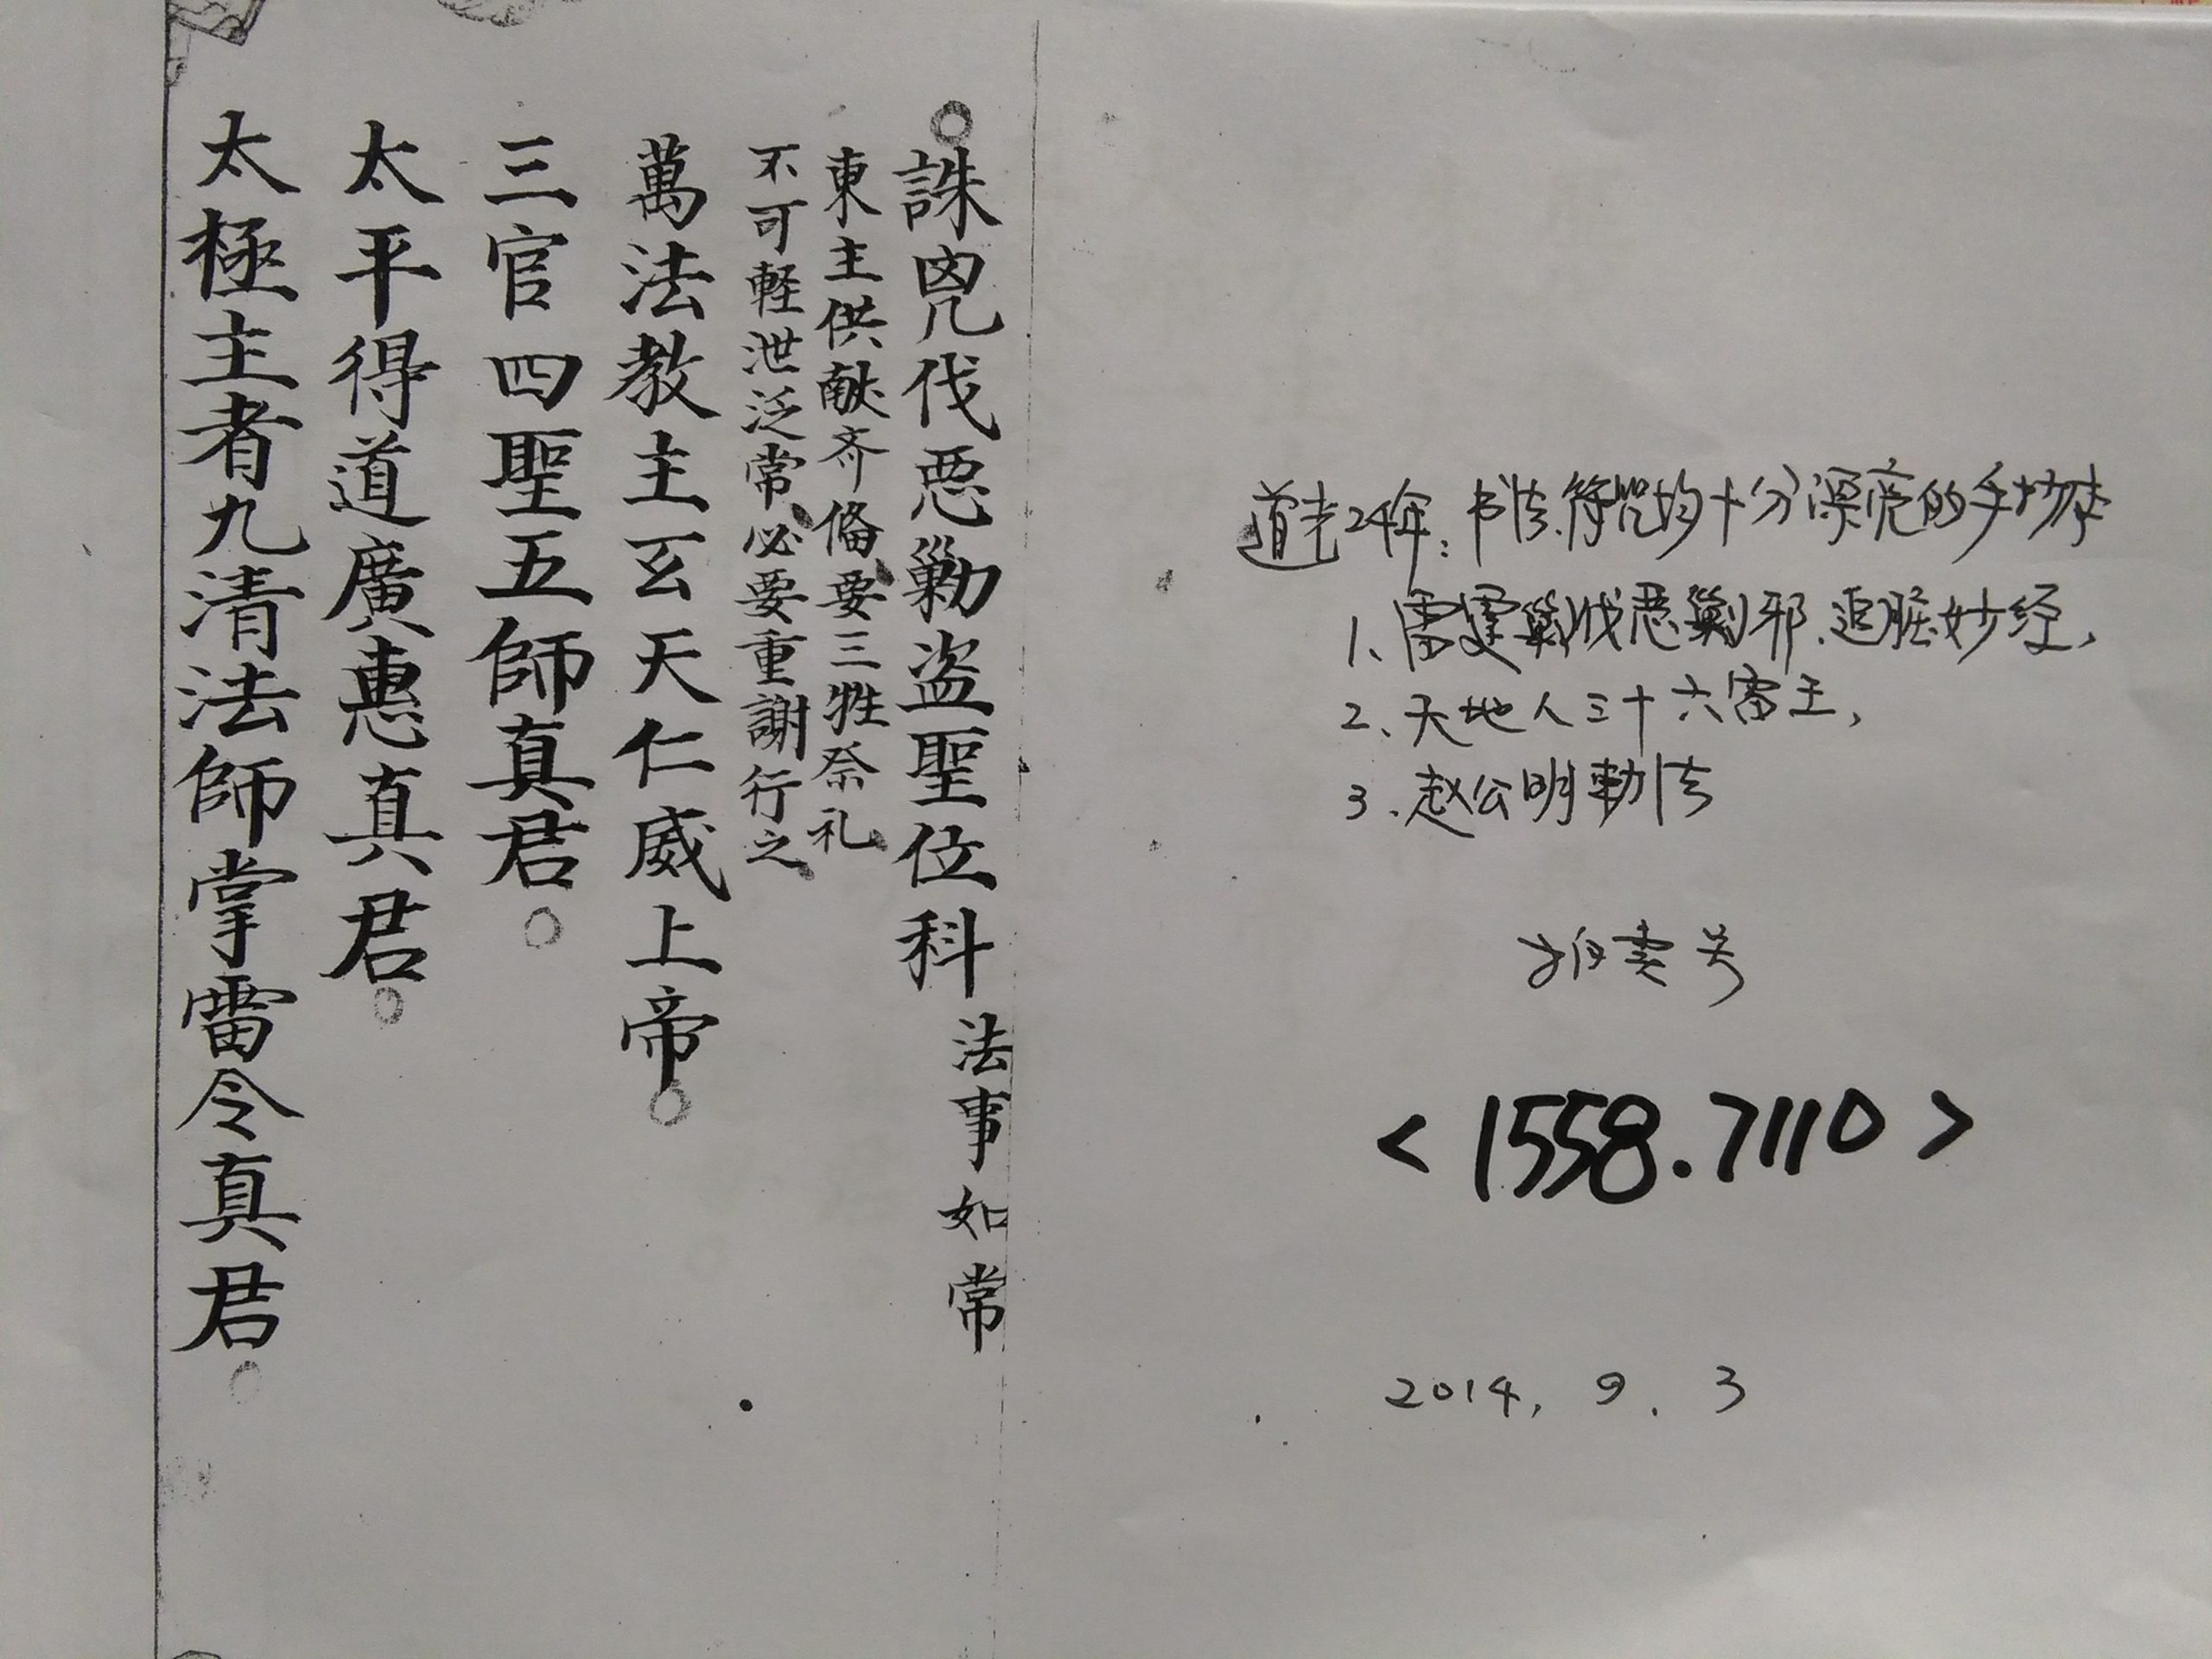 誅兇伐惡勦盜聖位科 法事如常
東主供献齐俻要三牲祭礼
不可軽泄泛常必要重謝行之
萬法教主玄天仁威上帝
三官四聖五師真君
太平得道廣惠真君
太極主者九清法師掌雷令真君
道光24年:书法、符咒均十分漂亮的手抄本
1、雷霆剿伐恶剿邪、追脏妙经,
2、天地人三十六雷王,
3、赵公明勅法
拍卖号
<1558.7110>
2014, 9. 3